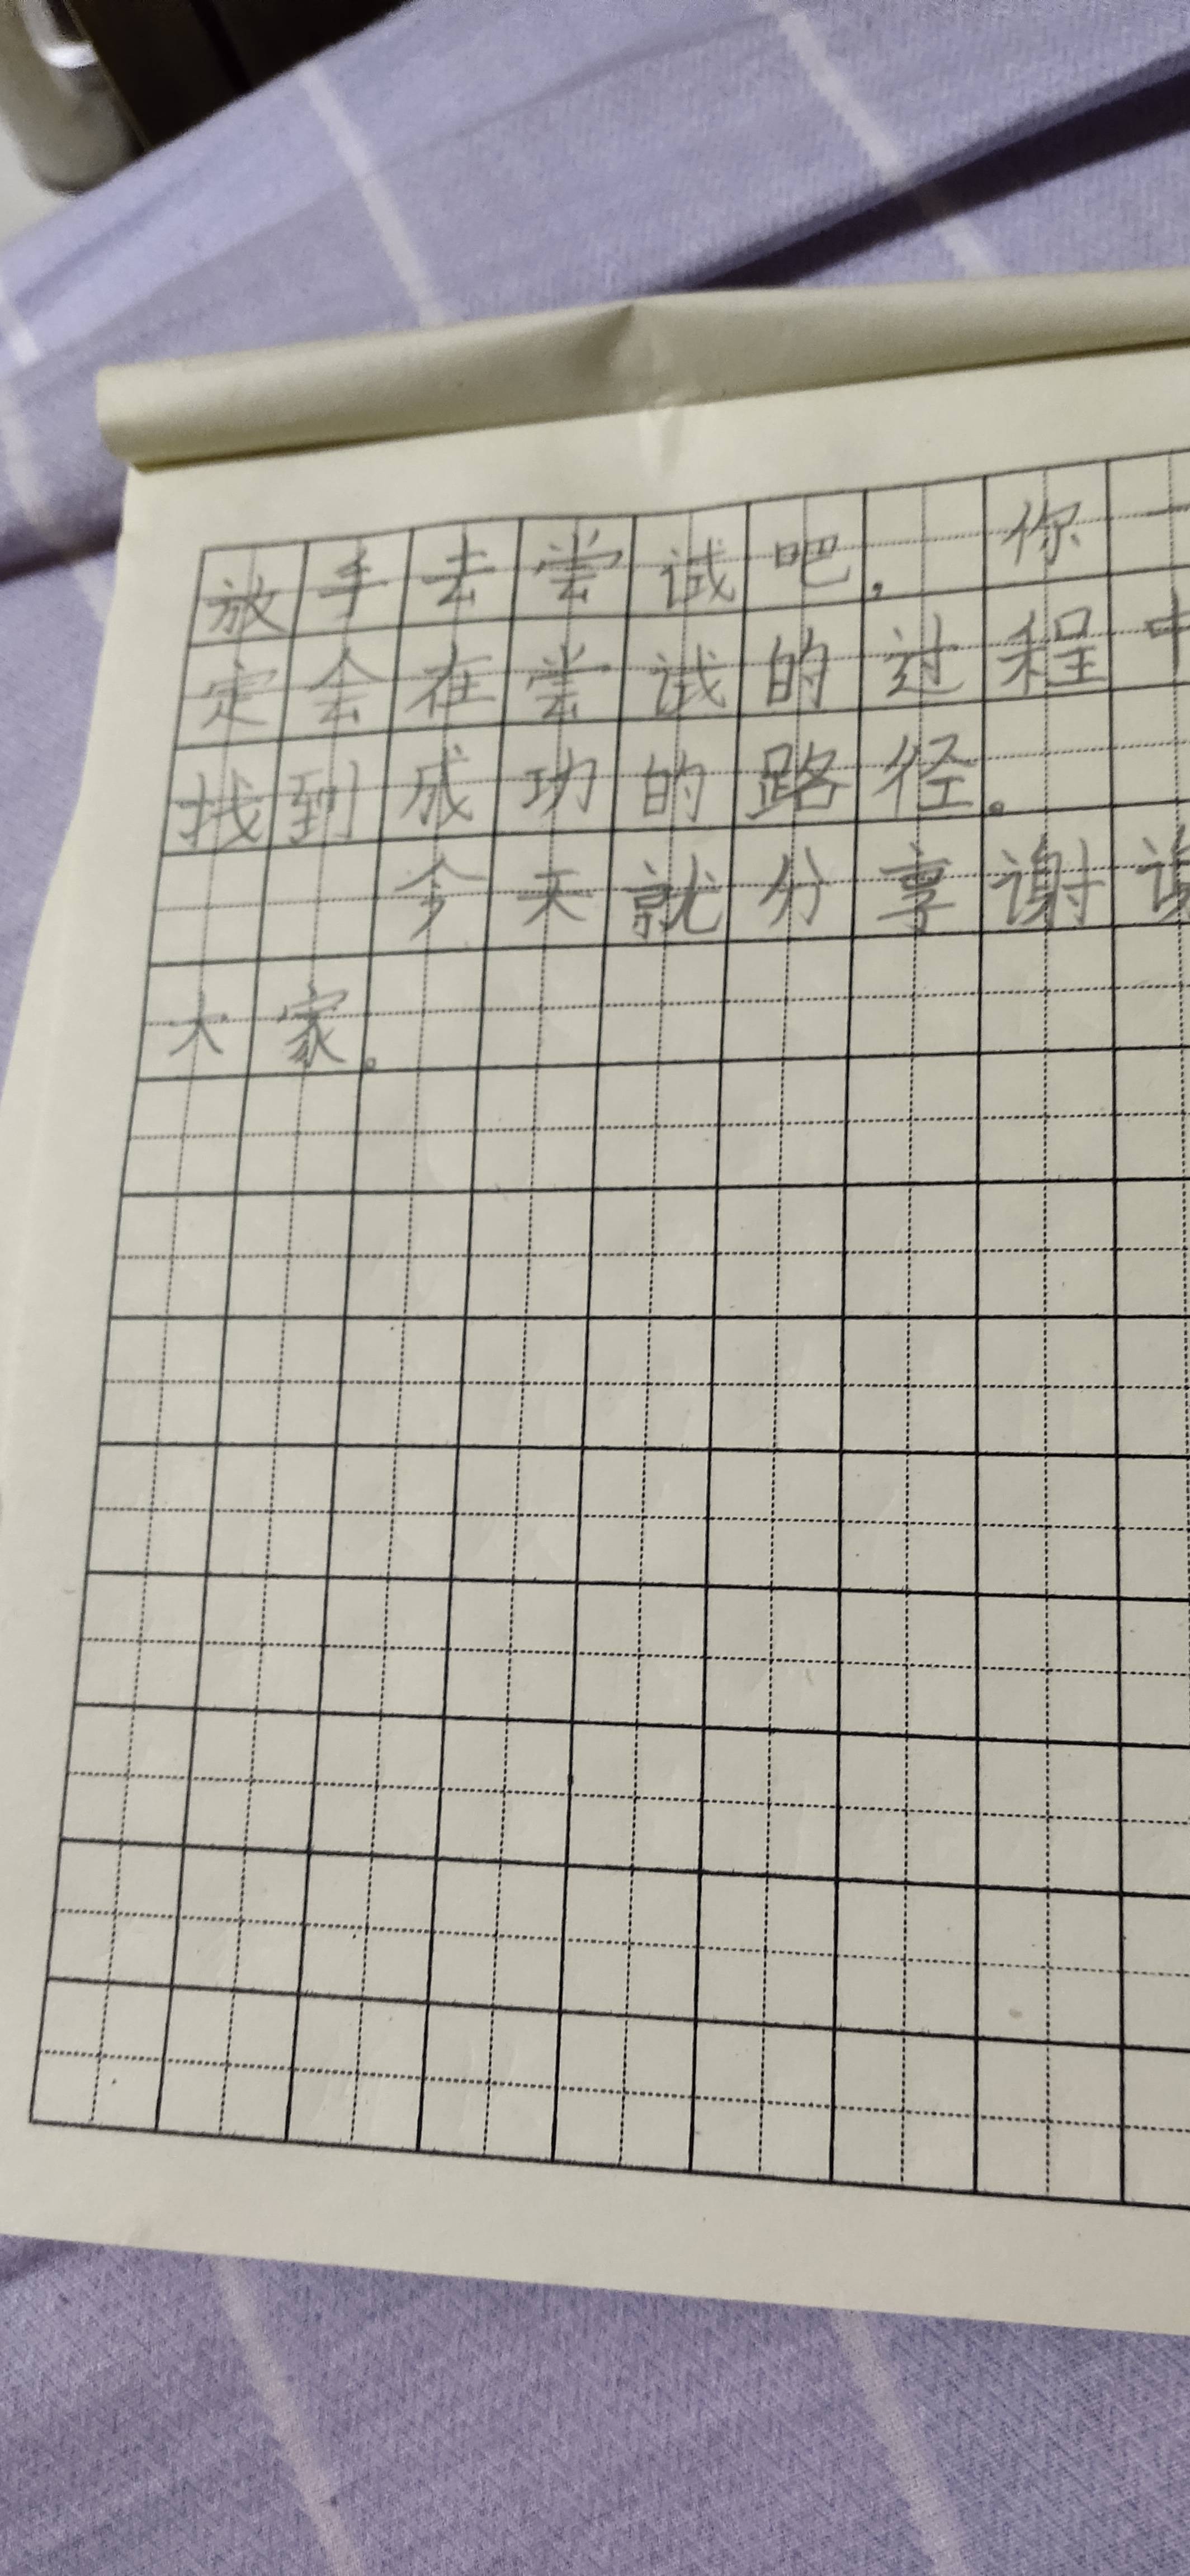 放手去尝试吧，你一
定会在尝试的过程中
找到成功的路径。
今天就分享谢谢
大家。